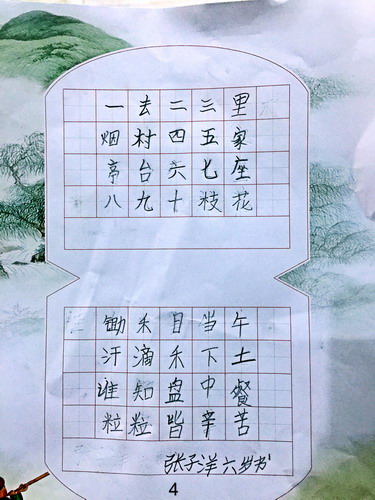 一去二三里
烟村四五家
亭台六七座
八九十枝花
锄禾日当午
汗滴禾下土
谁知盘中餐
粒粒皆辛苦
张子洋六岁书
4